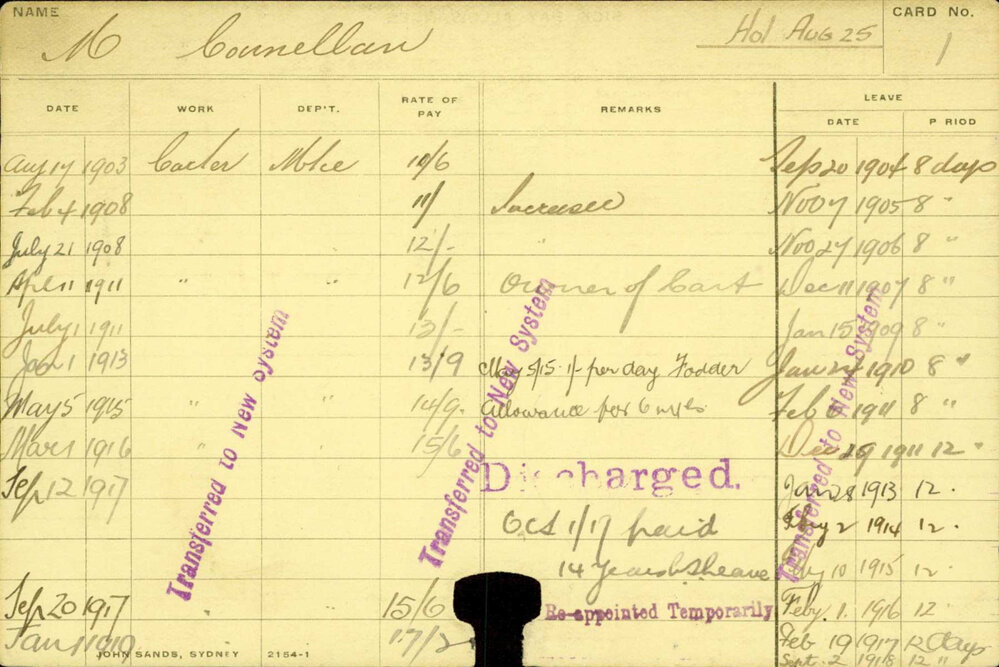 NAME M Connellan Hol Aug 25 CARD No. 1
LEAVE
DATE WORK DEP'T. RATE OF PAY REMARKS DATE P RIOD
Aug 17 1903 Carter Mtce 10/6 Sep 20 1904 8 days
Feb 4 1908 11/ Increase Nov 7 1905 8 "
July 21 1908 12/- Nov 27 1906 8 "
April 11 1911 " " 12/6 Owner of Cart Dec 11 1907 8 "
July 1 1911 13/- Jan 15 1909 8 "
Jan 1 1913 13/9 May 5/15 1/- per day Fodder Jan 24 1910 8 "
May 5 1915 " " 14/9. Allowance for 6 mths Feb 1911 8 "
Mar 1 1916 " 15/6 Dec 29 1911 12 "
Sep 12 1917 Discharged. Jan 28 1913 12 .
Oct 1/17 paid Feby 2 1914 12 .
14 years 10 1915 12 .
Sep 20 1917 15/6 Re-appointed Temporarily Feby. 1. 1916 12
Jan 1 1919 17/ Feb 19 1917 12 days
JOHN SANDS, SYDNEY 2154-1 Sept 2 1918 12 "
Transferred to New System
Transferred to New System
Transferred to New System